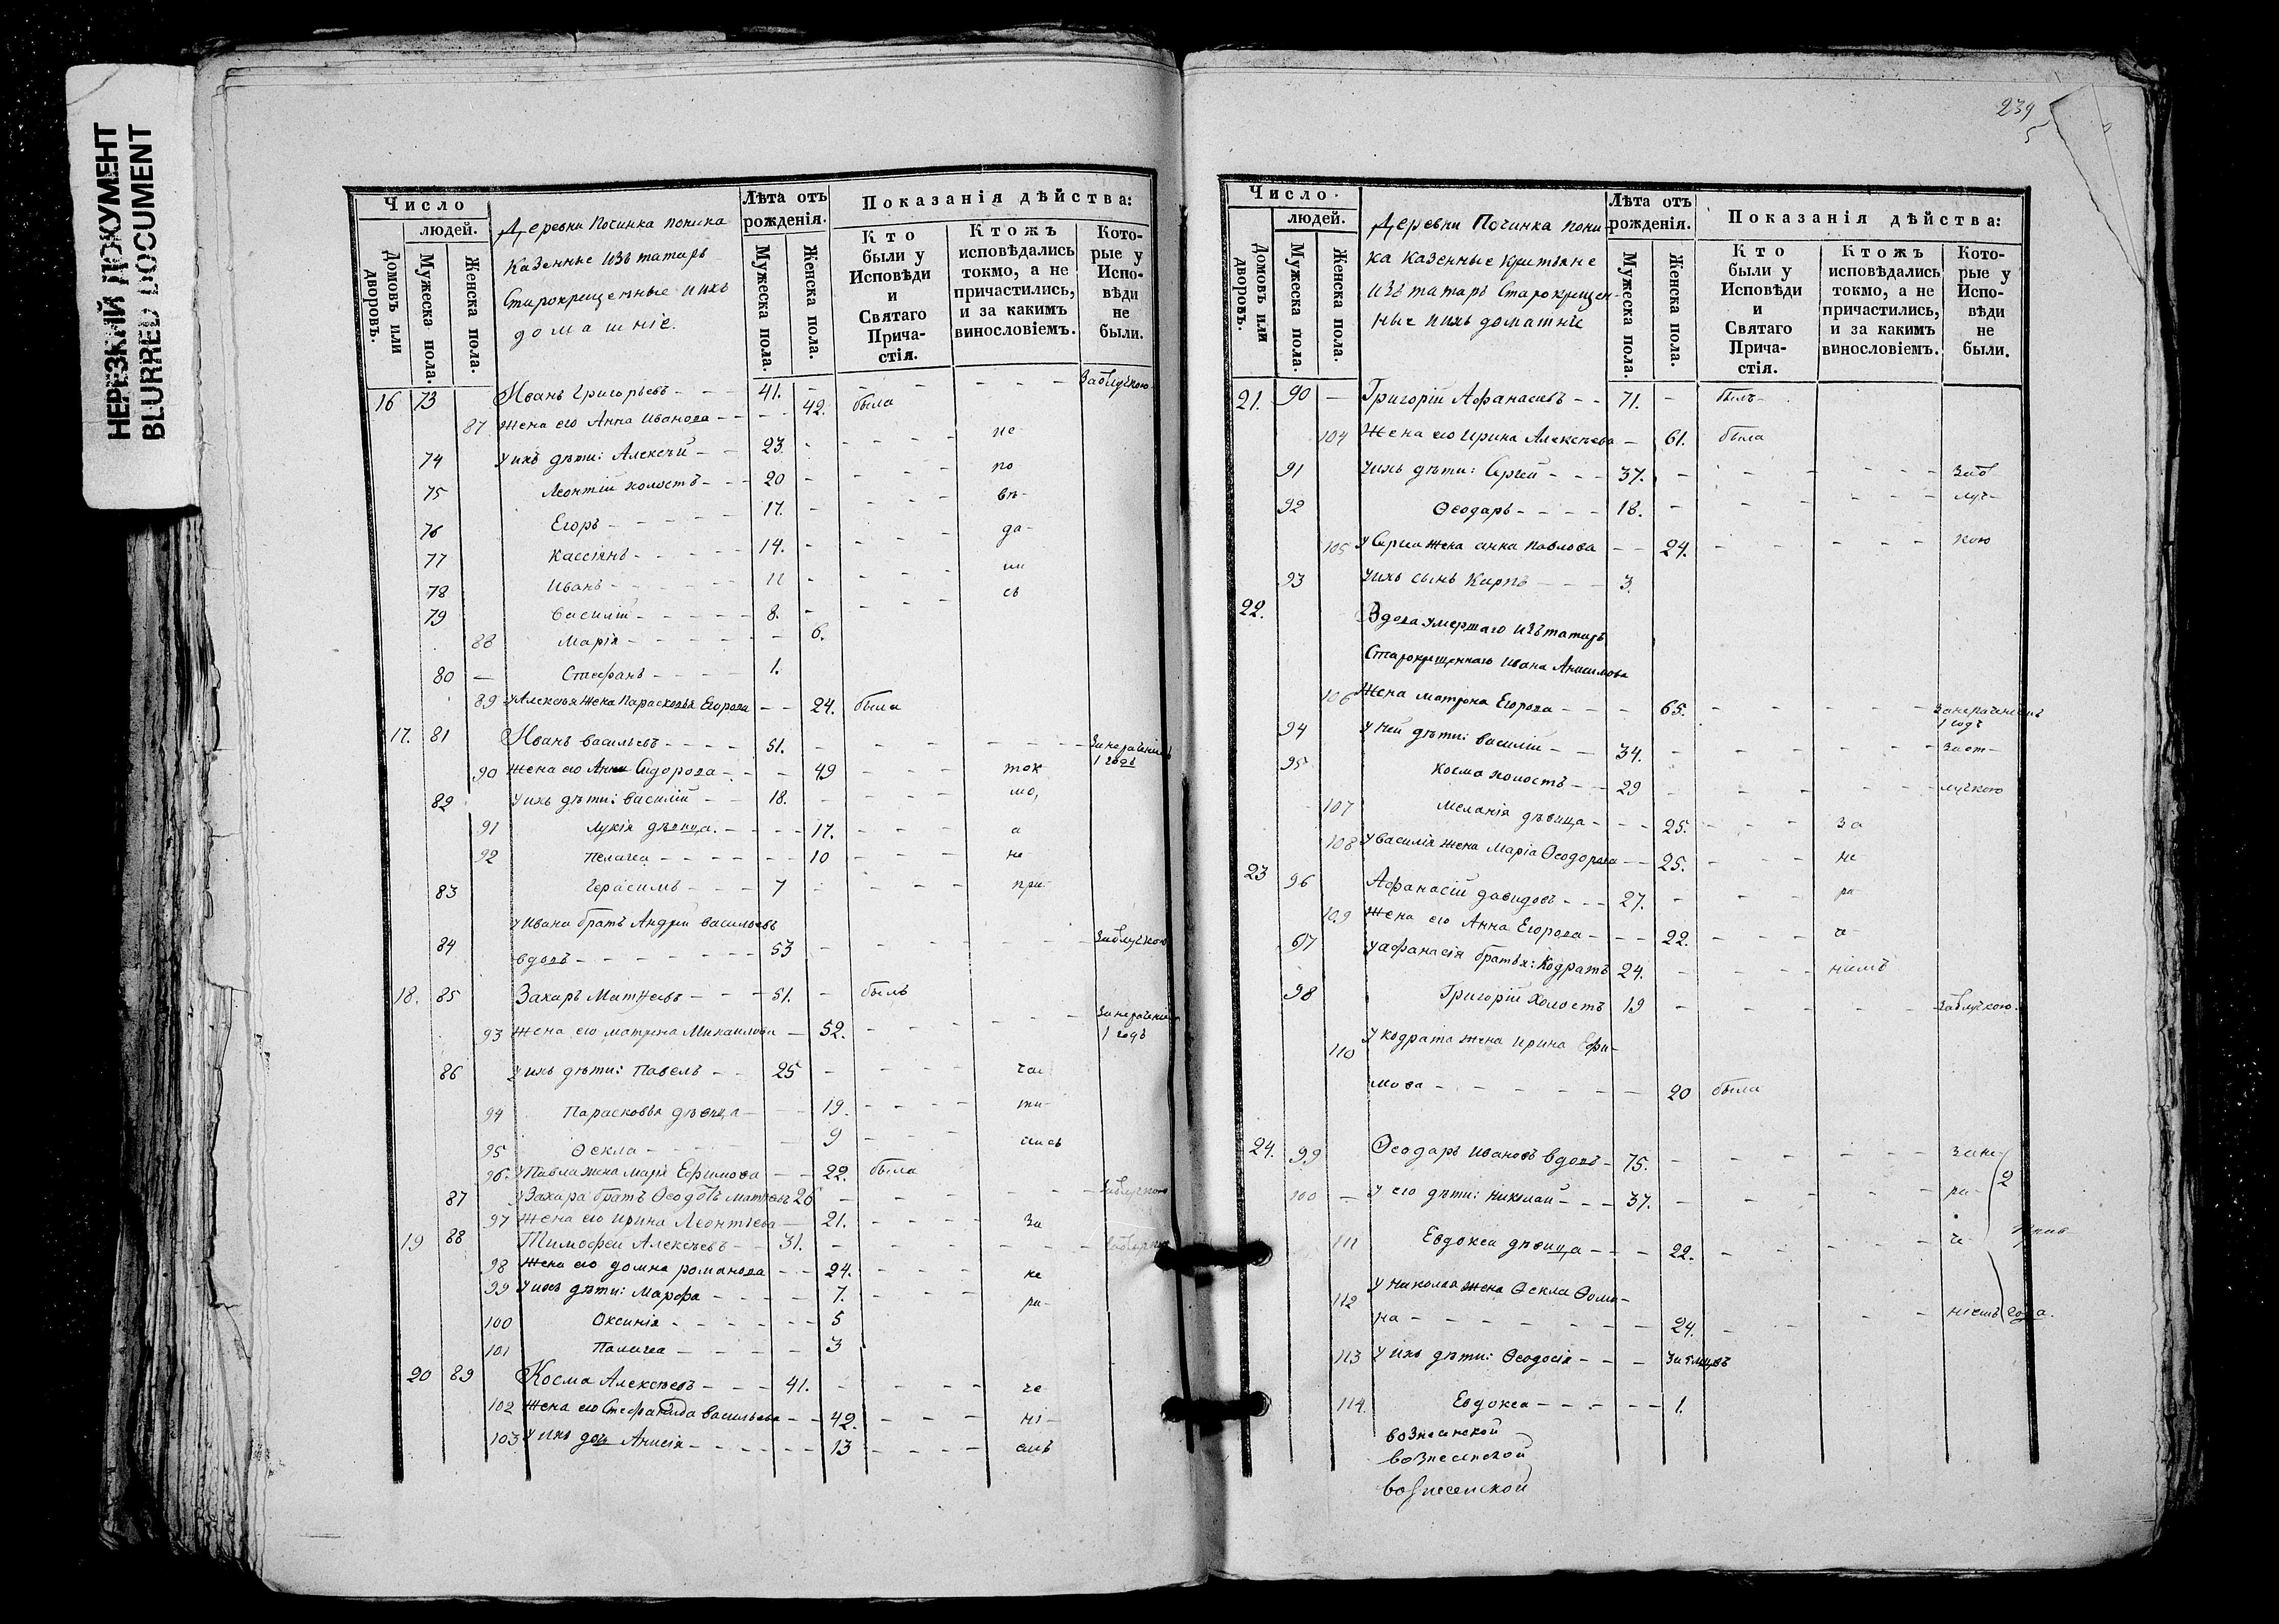 НЕРЕЗКИЙ ДОКУМЕНТ
BLURRED DOCUMENT
Число
людей.
Домовъ или дворовъ.
Мужеска пола.
Женска пола.
Деревни Починка поника
Казенные изъ татаръ
Старокрещенные и ихъ
домашніе.
Лѣта отъ рожденія.
Мужеска пола.
Женска пола.
Показанія дѣйства:
Кто были у Исповѣди и Святаго Причастія.
Ктожъ исповѣдались токмо, а не причастились, и за какимъ винословіемъ.
Которые у Исповѣди не были.
16 73 Иванъ Григорьевъ - - - 41. - - - - - - - Заотлучкою
87 Жена его Анна Иванова - - - - 42. была
74 У ихъ дѣти: Алексѣй - - 23. - - - - - не-
75 Леонтій холостъ - - - 20 - - - - по
76 Егоръ - - - - - 17. - - - - вѣ-
77 Кассіянъ - - - - - 14. - - - - да-
78 Иванъ - - - - - 11 - - - - ли
79 Василій - - - - - 8. - - - - съ
88 Марія - - - - - - 6.
80 — Стефанъ - - - - 1.
89 У Алексѣя жена Парасковья Егорова - - 24. была
17. 81 Иванъ Васильевъ - - - - 51. - - - - - - - Занераченіемъ 1 годъ
90 Жена его Анна Сидорова - - - 49 - - - ток
82 У ихъ дѣти: Василій - - 18. - - - - мо,
91 Лукія дѣвица. - - - - 17. - - - а
92 Пелагея - - - - - - 10 - - - не
83 Герасимъ - - - 7 - - - - при-
У Ивана братъ Андрей Васильевъ
84 вдовъ - - - - - - - 53 - - - - - - - Заотлучкою
18. 85 Захаръ Матѳеевъ - - - 51. - былъ
93 Жена его Матрена Михаилова - 52. - - - - - - Занераченіемъ 1 годъ
86 У ихъ дѣти: Павелъ - - 25 - - - - час
94 Парасковья дѣвица - - - 19. - - - ти-
95 Ѳекла - - - - - 9 - - - лись
96. У Павла жена Марья Ефимова - - 22. была
87 У Захара братъ Ѳеодотъ Матѳеевъ 26 - - - - - - - Заотлучкою
97 Жена его Ирина Леонтіева - 21. - - - За
19 88 Тимофей Алексѣевъ - - 31. - - - - - - -
98 Жена его Домна Романова - - 24. - - - не
99 У ихъ дѣти: Марфа - - - - - 7. - - - ра-
100 Оксинія - - - - - - 5
101 Палагея - - - - - 3
20 89 Косма Алексѣевъ - - - 41. - - - - че
102 Жена его Стефанида Васильева - - 42. - - - ні-
103 У ихъ дочь Анисія - - - - - - 13 - - - емъ
239
5
Число
людей.
Домовъ или дворовъ.
Мужеска пола.
Женска пола.
Деревни Починка пони-
ка казенные кристьяне
изъ татаръ Старокрещен-
ные и ихъ домашніе
Лѣта отъ рожденія.
Мужеска пола.
Женска пола.
Показанія дѣйства:
Кто были у Исповѣди и Святаго Причастія.
Ктожъ исповѣдались токмо, а не причастились, и за какимъ винословіемъ.
Которые у Исповѣди не были.
21. 90 — Григорій Афанасьевъ - - 71. - былъ
104 Жена его Ирина Алексѣева - 61. была
91 У ихъ дѣти: Сергей - - - 37. - - - - - - - Заот
92 Ѳеодаръ - - - - 18. - - - - - - - луч-
105 У Сергея жена Анна Павлова - - 24. - - - - - - кою
93 У ихъ сынъ Карпъ - - - 3.
22. Вдова умершаго изъ татаръ
Старокрещеннаго Ивана Анисимова
106 Жена Матрона Егорова - - - - 65. - - - - - - Занераченіемъ 1 годъ
94 У ней дѣти: Василій - - 34. - - - - - - - Заот-
95 Косма холостъ - - 29 - - - - - лучкою
107 Меланія дѣвица - - - 25. - - - за
108 У Василія жена Марія Ѳеодорова - - 25. - - - не
23 96 Афанасій Давидовъ - - - 27. - - - - ра
109 Жена его Анна Егорова - - - 22. - - - че-
97 У Афанасія братья: Кодратъ 24. - - - - ніемъ
98 Григорій холостъ 19 - - - - - - Заотлучкою.
110 У Кодрата жена Ирина Ефи-
мова - - - - - - - 20 была
24. 99 Ѳеодаръ Ивановъ вдовъ - 75. - - - - - - - Зане-
100 — У его дѣти: Николай - - - 37. - - - - - - - ра- 2
111 Евдокея дѣвица - - - 22. - - - - - - че-
112 У Николая жена Ѳекла Ѳоми-
на - - - - - - - - 24. - - - ніемъ года.
113 У ихъ дѣти: Ѳеодосія - - -
114. Евдокея - - - - - 1.
вознесенской
вознесенской
вознесенской